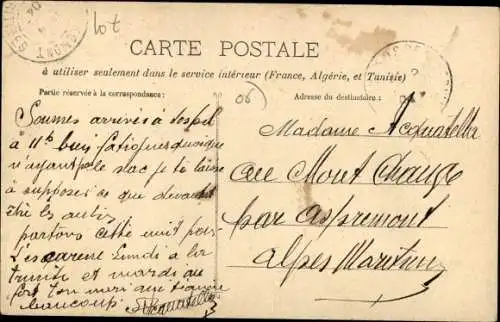 lot
CARTE POSTALE
à utiliser seulement dans le service intérieur (France, Algérie, et Tunisie)
Partie réservée à la correspondance:
Adresse du destinataire:
06
Sommes arrivés à Sospel
à 11h bien fatigués quoique
n'ayant pas le sac je te laisse
à supposer ce que devaient
être les autres
partons cette nuit pour
L'escarène Lundi à la
trinité et mardi au
fort ton mari qui t'aime
beaucoup
Madame Acquatella
au Mont Chauve
par Aspremont
Alpes Maritimes